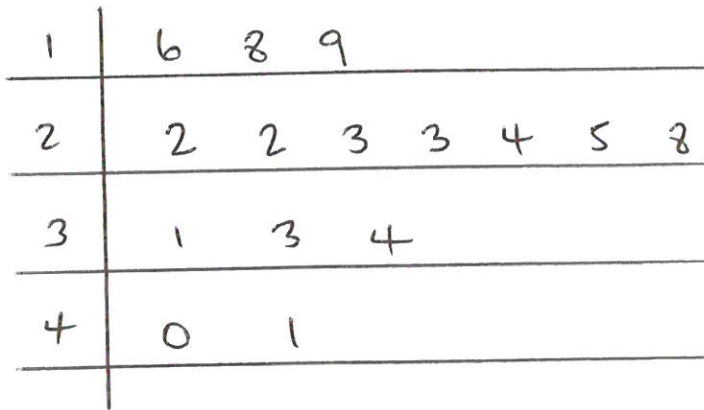 1 6 8 9
2 2 2 3 3 4 5 8
3 1 3 4
4 0 1